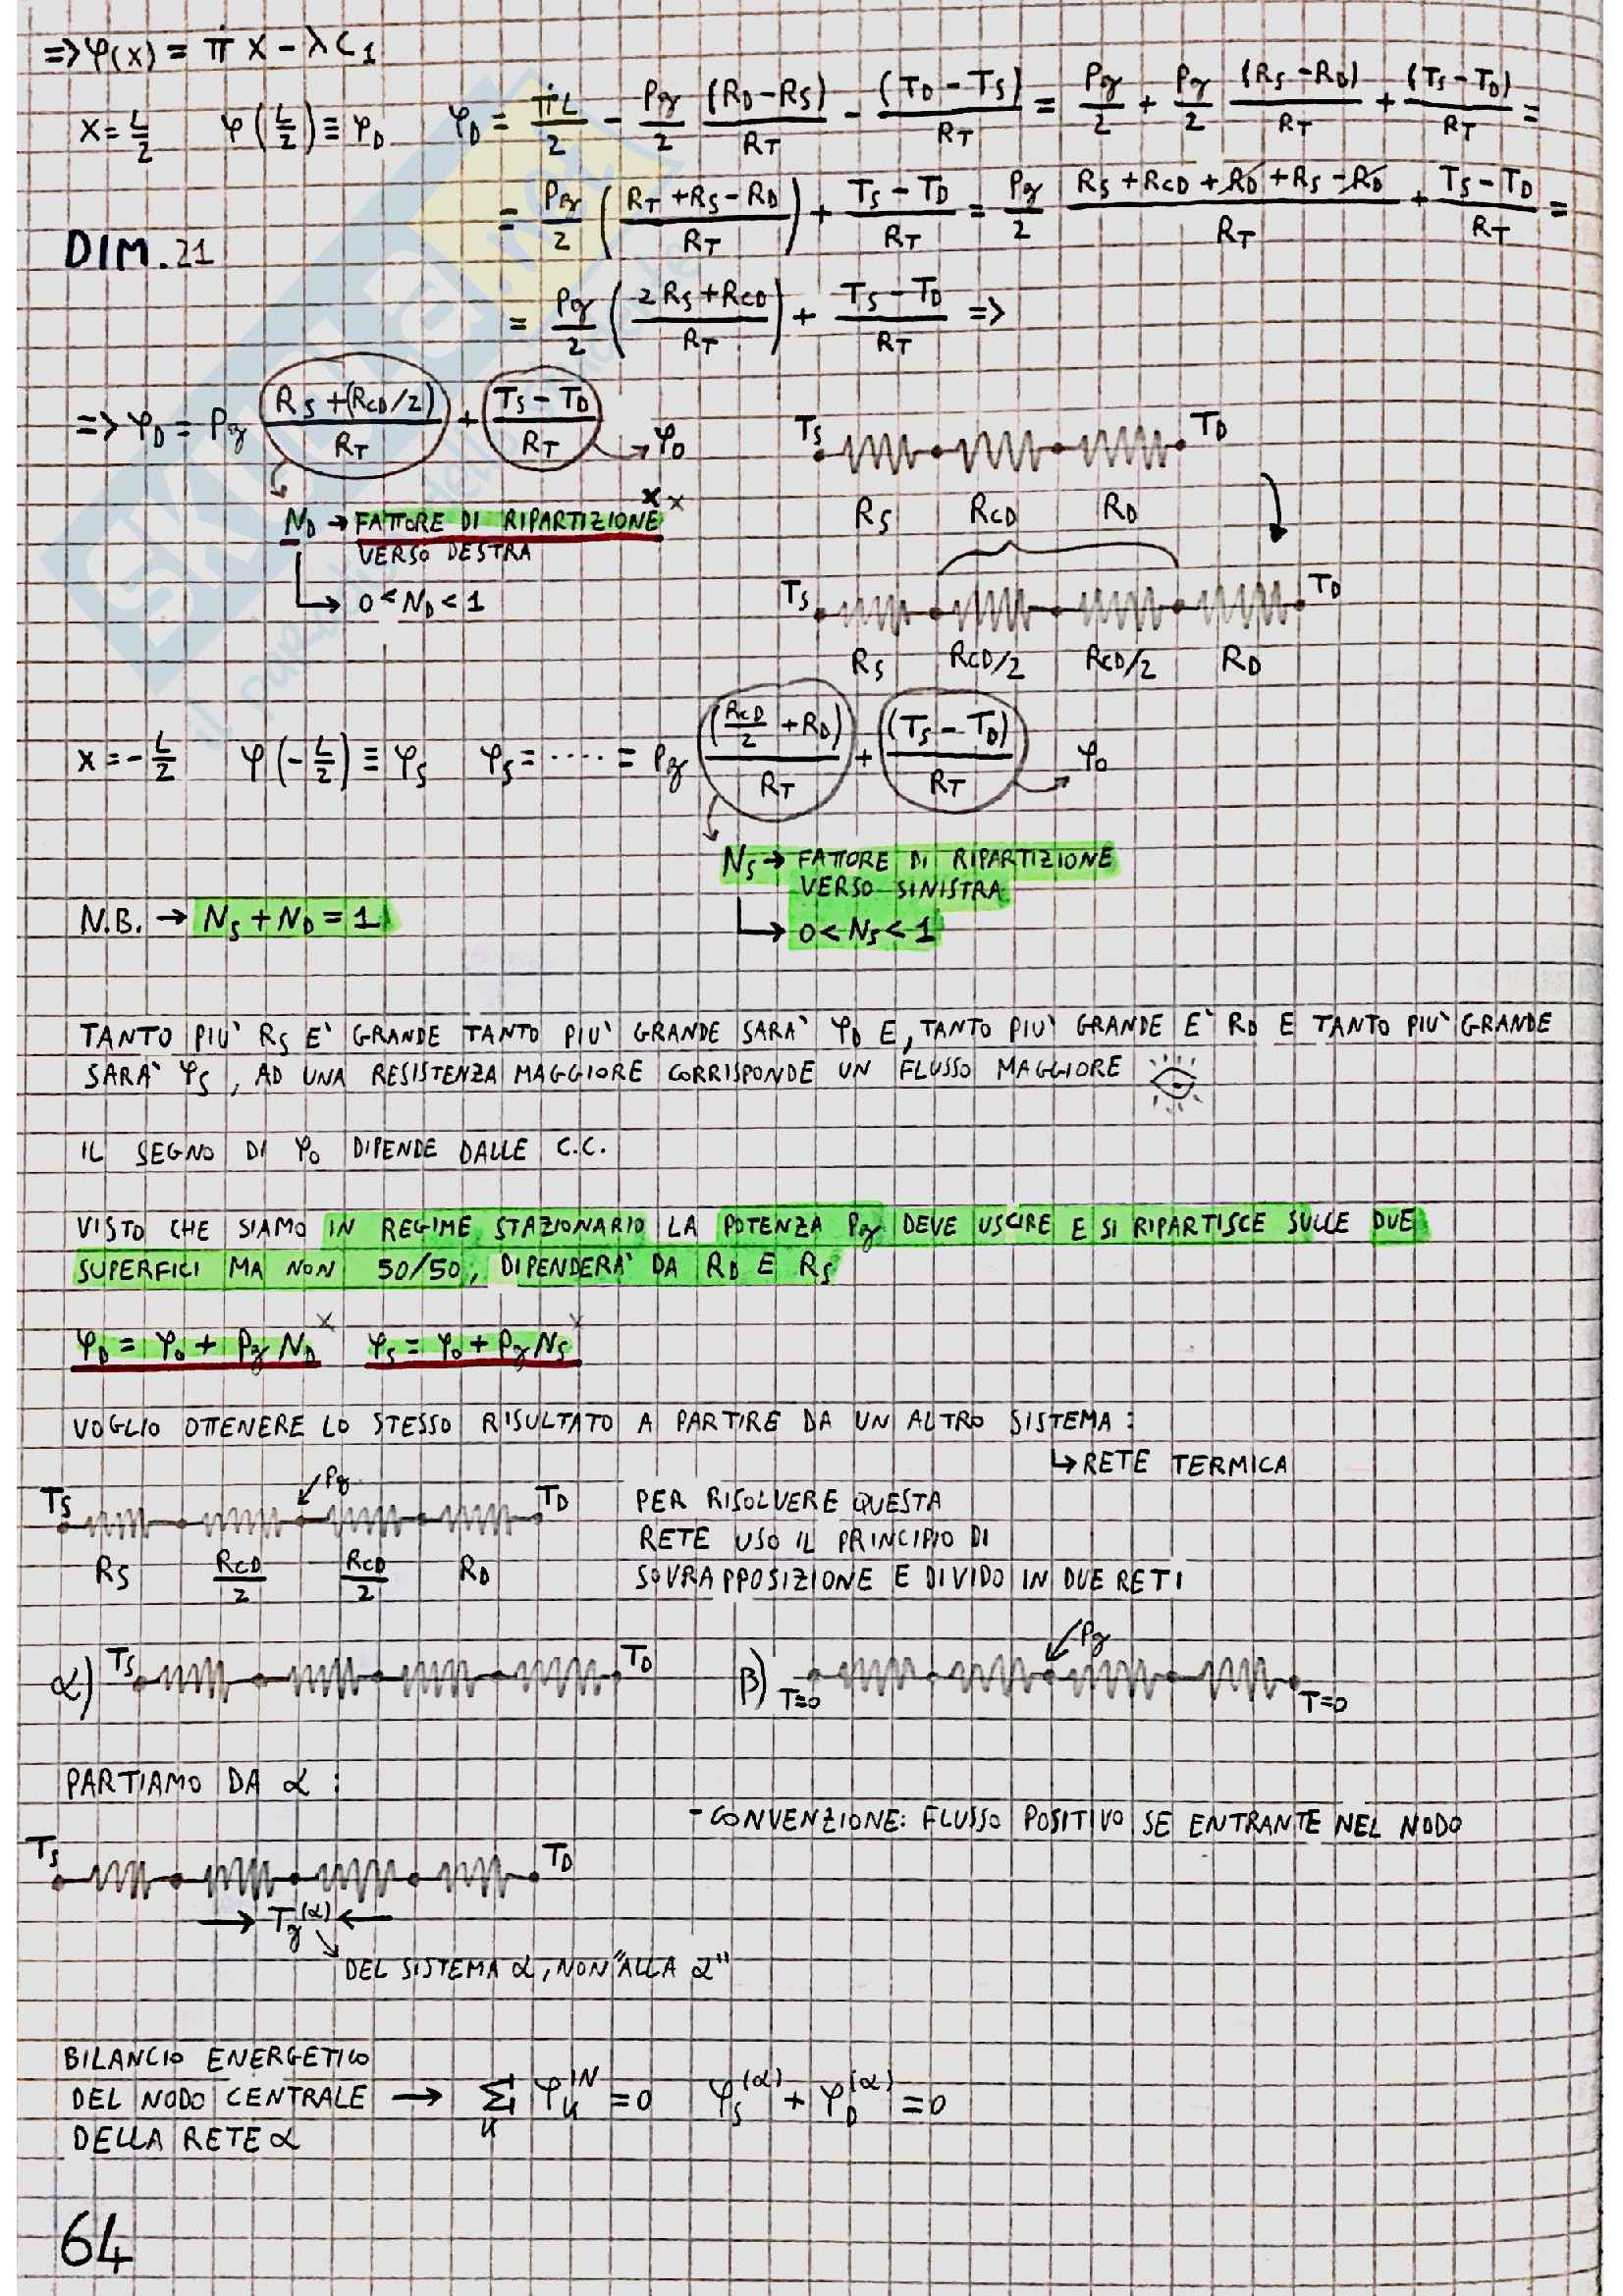 => φ(x) = π̇ x - λ C₁
x = L/2 φ(L/2) ≡ φ_D φ_D = π̇L/2 - Pg/2 (R_D - R_S)/R_T - (T_D - T_S)/R_T = Pg/2 + Pg/2 (R_S - R_D)/R_T + (T_S - T_D)/R_T =
= Pg/2 ((R_T + R_S - R_D)/R_T) + (T_S - T_D)/R_T = Pg/2 (R_S + R_CD + R_D + R_S - R_D)/R_T + (T_S - T_D)/R_T =
DIM. 21
= Pg/2 ((2R_S + R_CD)/R_T) + (T_S - T_D)/R_T =>
=> φ_D = Pg (R_S + (R_CD/2))/R_T + (T_S - T_D)/R_T → φ₀
T_S T_D
R_S R_CD R_D
N_D → FATTORE DI RIPARTIZIONE
VERSO DESTRA
↳ 0 < N_D < 1
T_S T_D
R_S R_CD/2 R_CD/2 R_D
x = -L/2 φ(-L/2) ≡ φ_S φ_S = ····· = Pg (R_CD/2 + R_D)/R_T + (T_S - T_D)/R_T → φ₀
N_S → FATTORE DI RIPARTIZIONE
VERSO SINISTRA
↳ 0 < N_S < 1
N.B. → N_S + N_D = 1
TANTO PIU' R_S E' GRANDE TANTO PIU' GRANDE SARA' φ_D E, TANTO PIU' GRANDE E' R_D E TANTO PIU' GRANDE
SARA' φ_S, AD UNA RESISTENZA MAGGIORE CORRISPONDE UN FLUSSO MAGGIORE
IL SEGNO DI φ₀ DIPENDE DALLE C.C.
VISTO CHE SIAMO IN REGIME STAZIONARIO LA POTENZA Pg DEVE USCIRE E SI RIPARTISCE SULLE DUE
SUPERFICI MA NON 50/50, DIPENDERA' DA R_D E R_S
φ_D = φ₀ + Pg N_D φ_S = φ₀ + Pg N_S
VOGLIO OTTENERE LO STESSO RISULTATO A PARTIRE DA UN ALTRO SISTEMA:
↳ RETE TERMICA
T_S Pg T_D
R_S R_CD/2 R_CD/2 R_D
PER RISOLVERE QUESTA
RETE USO IL PRINCIPIO DI
SOVRAPPOSIZIONE E DIVIDO IN DUE RETI
α) T_S T_D
β) T=0 Pg T=0
PARTIAMO DA α:
- CONVENZIONE: FLUSSO POSITIVO SE ENTRANTE NEL NODO
T_S T_D
→ Tg^(α) ←
DEL SISTEMA α, NON "ALLA α"
BILANCIO ENERGETICO
DEL NODO CENTRALE → Σ_k φ_k^IN = 0 φ_S^(α) + φ_D^(α) = 0
DELLA RETE α
64